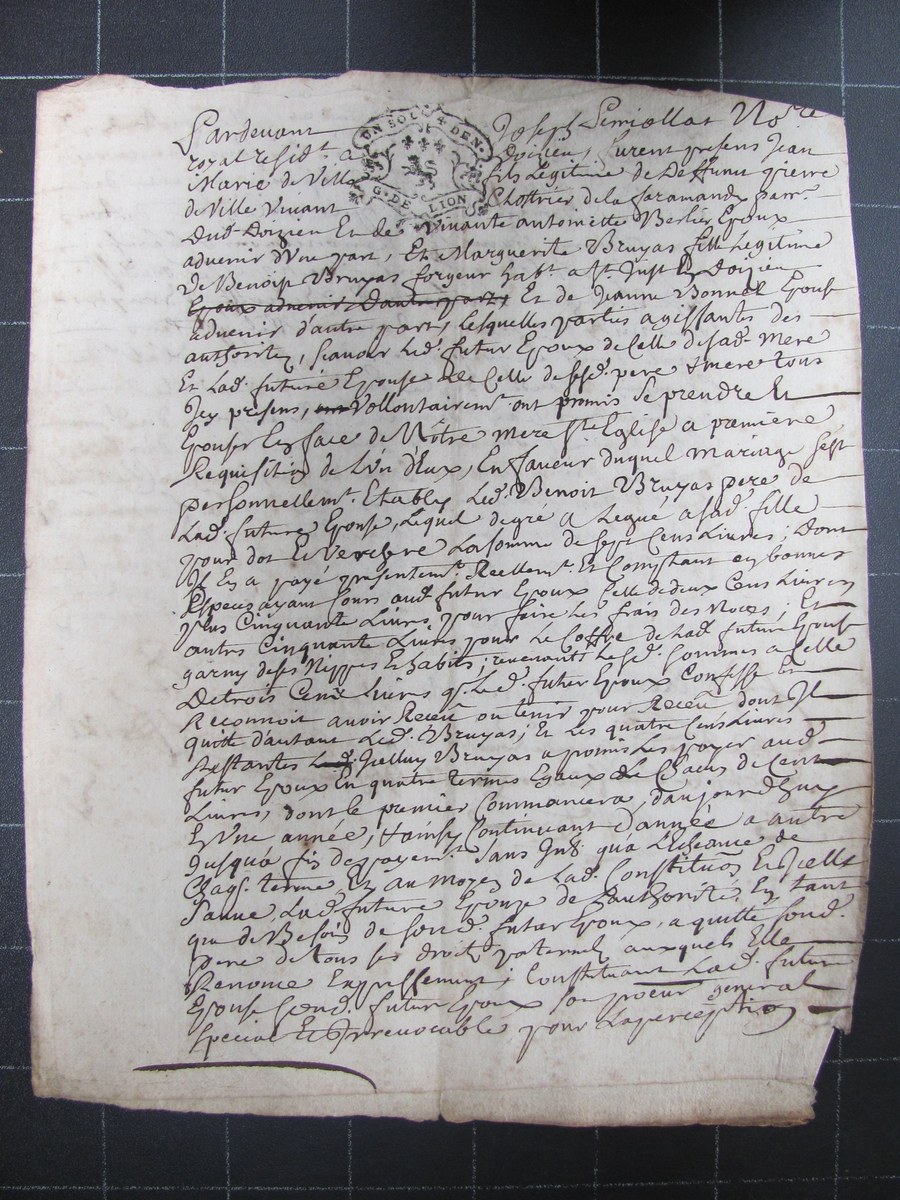 Pardevant Joseph Perriollat No.re
royal resid.t a Doizieu, furent presens Jean
Marie de Ville fils Legitime de Deffunt pierre
de Ville Vivant Chottrier de la faramand parr.e
Dud. Doizieu Et de Vivante antoinette Berlier Epoux
UN SOL 4 DEN.
G. DE LION
advenir d'Une part, Et Marguerite Bruyas fille Legitime
De Benoist Bruyas forgeur hab.t a St Just En Doizieu
Epoux advenir D'autre part, Et de Jeanne Bonnet Epouse
advenir d'autre part, Lesquelles parties agissantes des
authoritez, scavoir Led. futur Epoux de Celle de sad. Mere
Et Lad. future Epouse de Celle de sesd. pere & mere tous
Icy presens, Vollontairem.t ont promis se prendre Et
Epouser En face de Nôtre mere S.te Eglise a premiere
Requisition de L'un d'Eux, En faveur duquel Mariage s'est
personnellem.t Etably Led. Benoit Bruyas pere de
Lad. future Epouse, Lequel de gré a Legué a sad. fille
pour dot Et Verchere La somme de sept Cens Livres; Dont
Il En a payé presentem.t Reellem.t Et Comptant en bonnes
Especes ayant Cours aud. futur Epoux Celle de deux Cens Livres
Plus Cinquante Livres pour faire Les frais des Noces; Et
autres Cinquante Livres pour Le Coffre de Lad. future Epouse
garny de ses Nippes Et habits; revenants Lesd. sommes a Celle
De trois Cens Livres q. Led. futur Epoux Confesse Et
Reconnoit avoir Receu ou tenir pour Receu dont Il
quitte d'autant Led. Bruyas; Et Les quatre Cens Livres
Restantes Icelluy Bruyas a promis Les payer aud.
futur Epoux En quatre termes Egaux de Chacun de Cent
Livres, dont le premier Commancera d'aujourd'huy
En Une année, & ainsy Continuant d'année a autre
Jusqu'a fin de payem.t sans Int. qu'a L'Echeance de
Chaq. terme, Et au Moyen de Lad. Constitution En Icelle
Lad. future Epouze de L'authorité, En tant
que de Besoin de sond. futur Epoux, a quitté sond.
Pere de tous ses droits paternels auxquels Elle
Renonce Expressement; Constituant Lad. future
Epouse sond. futur Epoux son procur general
special Et Irrevocable pour La perception